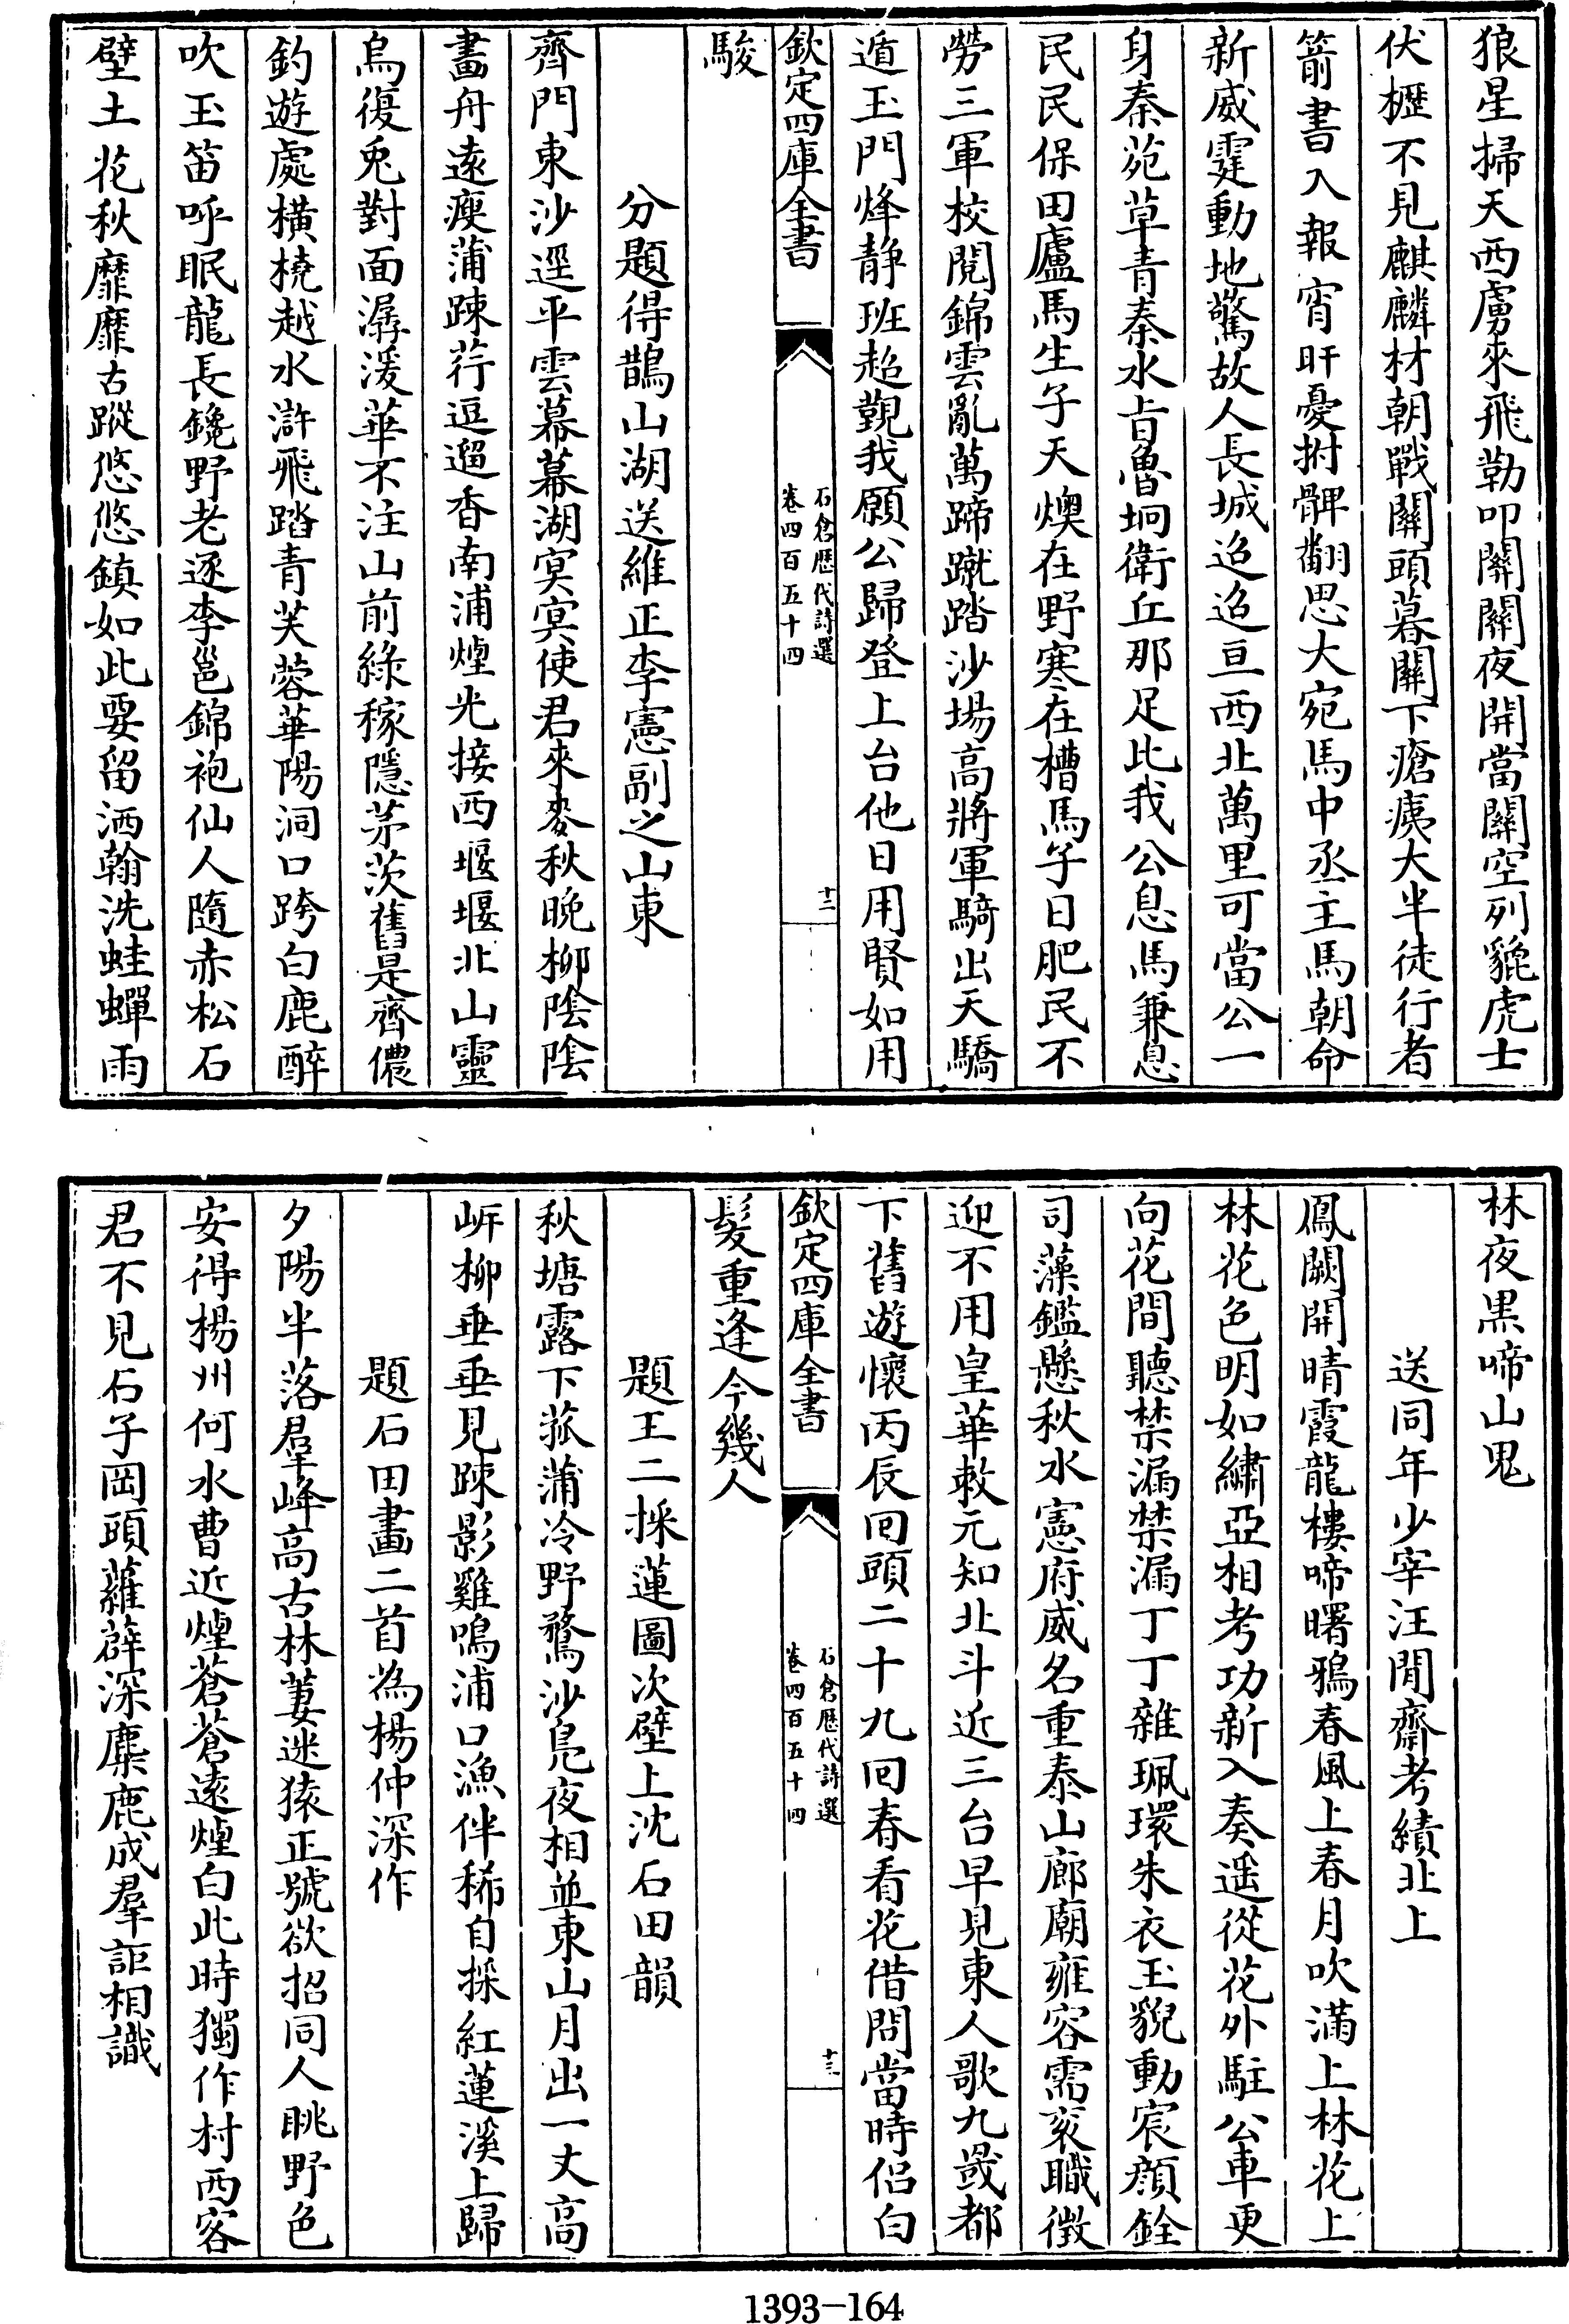 狼星掃天西虜來飛勒叩關關夜開當關空列貔虎士
伏櫪不見麒麟材朝戰關頭暮關下瘡痍大半徒行者
箭書入報宵旰憂拊髀翻思大宛馬中丞主馬朝命
新威霆動地驚故人長城迢迢亘西北萬里可當公一
身秦苑草青秦水占魯坰衛丘那足比我公息馬兼息
民民保田廬馬生子天燠在野寒在槽馬孳日肥民不
勞三軍校閱錦雲亂萬蹄蹴踏沙場高將軍騎出天驕
遁玉門烽静班超覲我願公歸登上台他日用賢如用
欽定四庫全書
石倉歷代詩選
卷四百五十四
十二
駿
分題得鵲山湖送維正李憲副之山東
齊門東沙逕平雲幕幕湖㝠㝠使君來麥秋晚柳陰陰
畫舟遠瘦蒲踈荇逗遛香南浦煙光接西堰堰北山靈
烏復兎對面潺湲華不注山前綠稼隱茅茨舊是齊儂
釣遊處橫橈越水滸飛踏青芙蓉華陽洞口跨白鹿醉
吹玉笛呼眠龍長鑱野老逐李邕錦袍仙人隨赤松石
壁土花秋靡靡古蹤悠悠鎮如此要留洒翰洗蛙蟬雨
林夜黒啼山鬼
送同年少宰汪閒齋考績北上
鳳闕開晴霞龍樓啼曙鴉春風上春月吹滿上林花上
林花色明如繡亞相考功新入奏遥從花外駐公車更
向花間聽禁漏禁漏丁丁雜珮環朱衣玉貌動宸顔銓
司藻鑑懸秋水憲府威名重泰山廊廟雍容需衮職徴
迎不用皇華敕元知北斗近三台早見東人歌九罭都
下舊遊懷丙辰回頭二十九回春看花借問當時侣白
欽定四庫全書
石倉歷代詩選
卷四百五十四
十三
髮重逢今幾人
題王二採蓮圖次壁上沈石田韻
秋塘露下菰蒲冷野鶩沙鳬夜相並東山月出一丈高
岍柳垂垂見踈影雞鳴浦口漁伴稀自採紅蓮溪上歸
題石田畫二首為楊仲深作
夕陽半落羣峰高古林萋迷猿正號欲招同人眺野色
安得楊州何水曹近煙蒼蒼遠煙白此時獨作村西客
君不見石子岡頭蘿薜深麋鹿成羣詎相識
1393—164